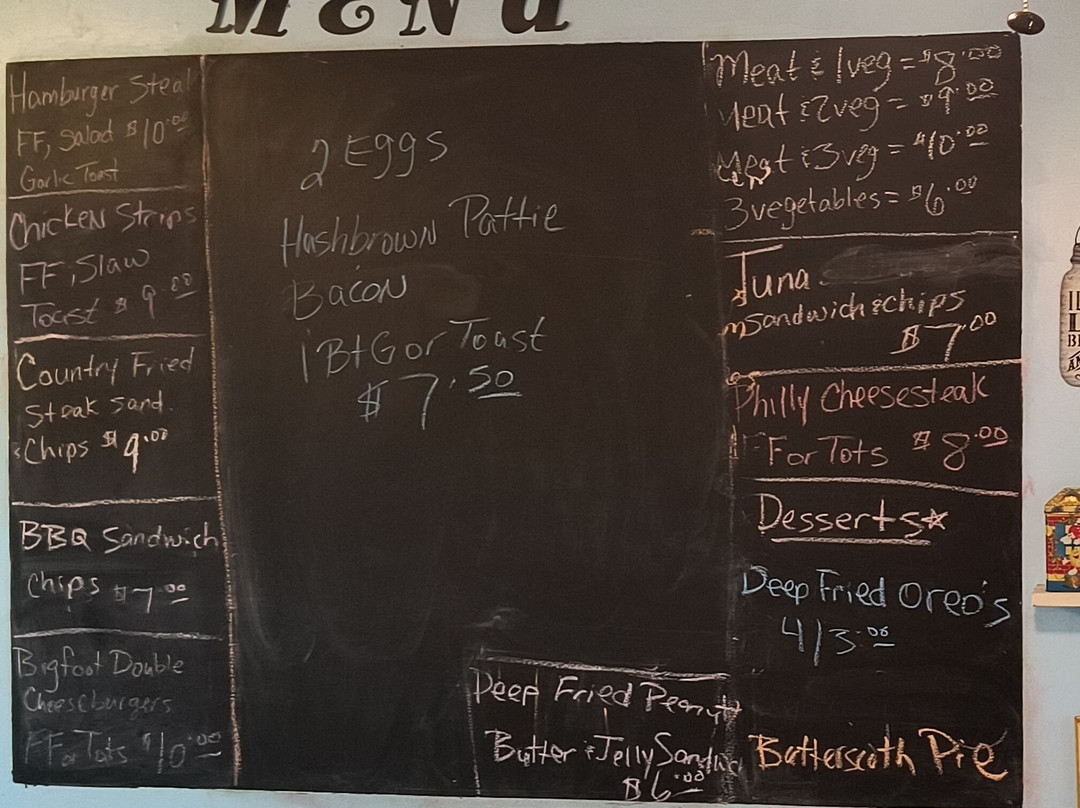 MENU
Hamburger Steak
FF, Salad $10.00
Garlic Toast
Chicken Strips
FF, Slaw
Toast $9.00
Country Fried
Steak Sand.
& Chips $9.00
BBQ Sandwich
Chips $7.00
Bigfoot Double
Cheeseburgers
FF or Tots $10.00
2 Eggs
Hashbrown Pattie
Bacon
1 B+G or Toast
$7.50
Deep Fried Peanut
Butter & Jelly Sandwich
$6.00
Meat & 1 veg = $8.00
Meat & 2 veg = $9.00
Meat & 3 veg = $10.00
3 vegetables = $6.00
Tuna
Sandwich & chips
$7.00
Philly Cheesesteak
FF or Tots $8.00
Desserts*
Deep Fried Oreo's
4/3.00
Butterscoth Pie